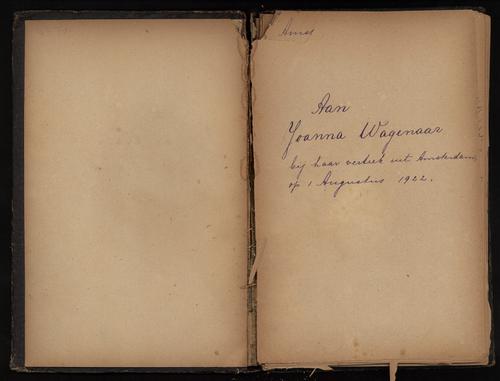 Aan
Yoanna Wagenaar
bij haar vertrek uit Amsterdam,
op 1 Augustus 1922.